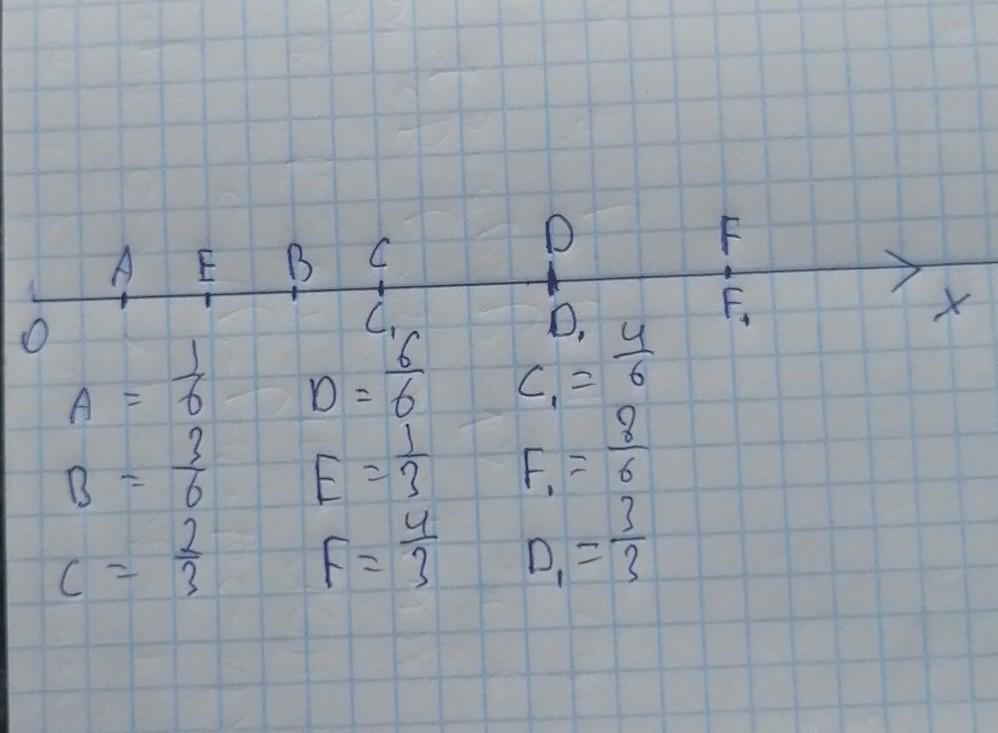 A E B C D F
O C₁ D₁ F₁ X
A = 1/6 D = 6/6 C₁ = 4/6
B = 3/6 E = 1/3 F₁ = 8/6
C = 2/3 F = 4/3 D₁ = 3/3